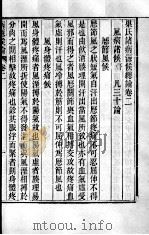 巢氏諸病源候總論卷二
風病諸候下 凡三十論
歷節風候
歷節風之狀短氣自汗出歷節疼痛不可忍屈伸不得
是也由飲酒腠理開汗出當風所致也亦有血氣虛受
風邪而得之者風歷關節與血氣相搏交攻故疼痛血
氣虛則汗也風冷搏於筋則不可屈伸為歷節風也
風身體疼痛候
風身體疼痛者風濕搏於陽氣故也陽氣虛者腠理易
開而為風濕所折使陽氣不得發泄而與風濕相搏於
分肉之間相攻故疼痛也診其脈浮而緊者則身體疼痛